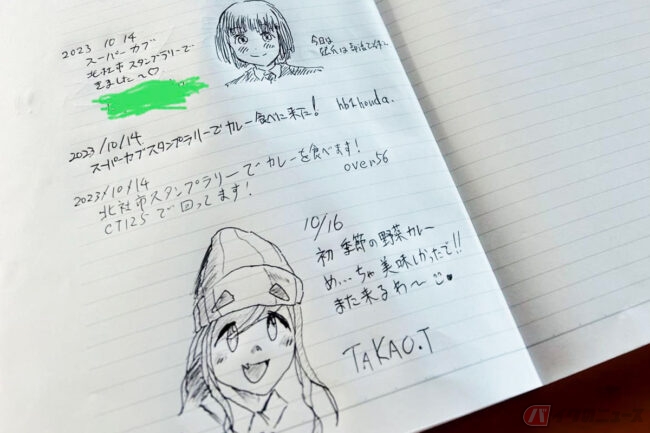 2023 10 14
スーパーカブ
北杜市スタンプラリーで
きました〜♡
今日は
2023/10/14
スーパーカブスタンプラリーでカレー食べに来た! hb1houda.
2023/10/14
北杜市スタンプラリーでカレーを食べます!
over56
CT125で回ってます!
10/16
初季節の野菜カレー
め…ちゃ美味しかったで!!
また来るわ〜
TAKAO.T